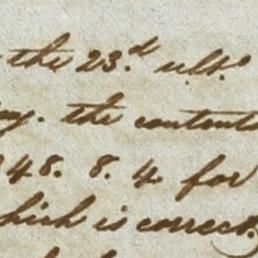 the 23.d ult.o
the contents
48. 8. 4. for
which is correct.